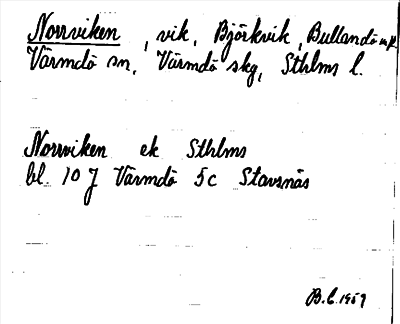 Norrviken, vik, Björkvik, Bullandö
Värmdö sn, Värmdö skg, Sthlms l.
Norrviken ek Sthlms
bl 10 J Värmdö 5c Stavsnäs
B.C. 1959